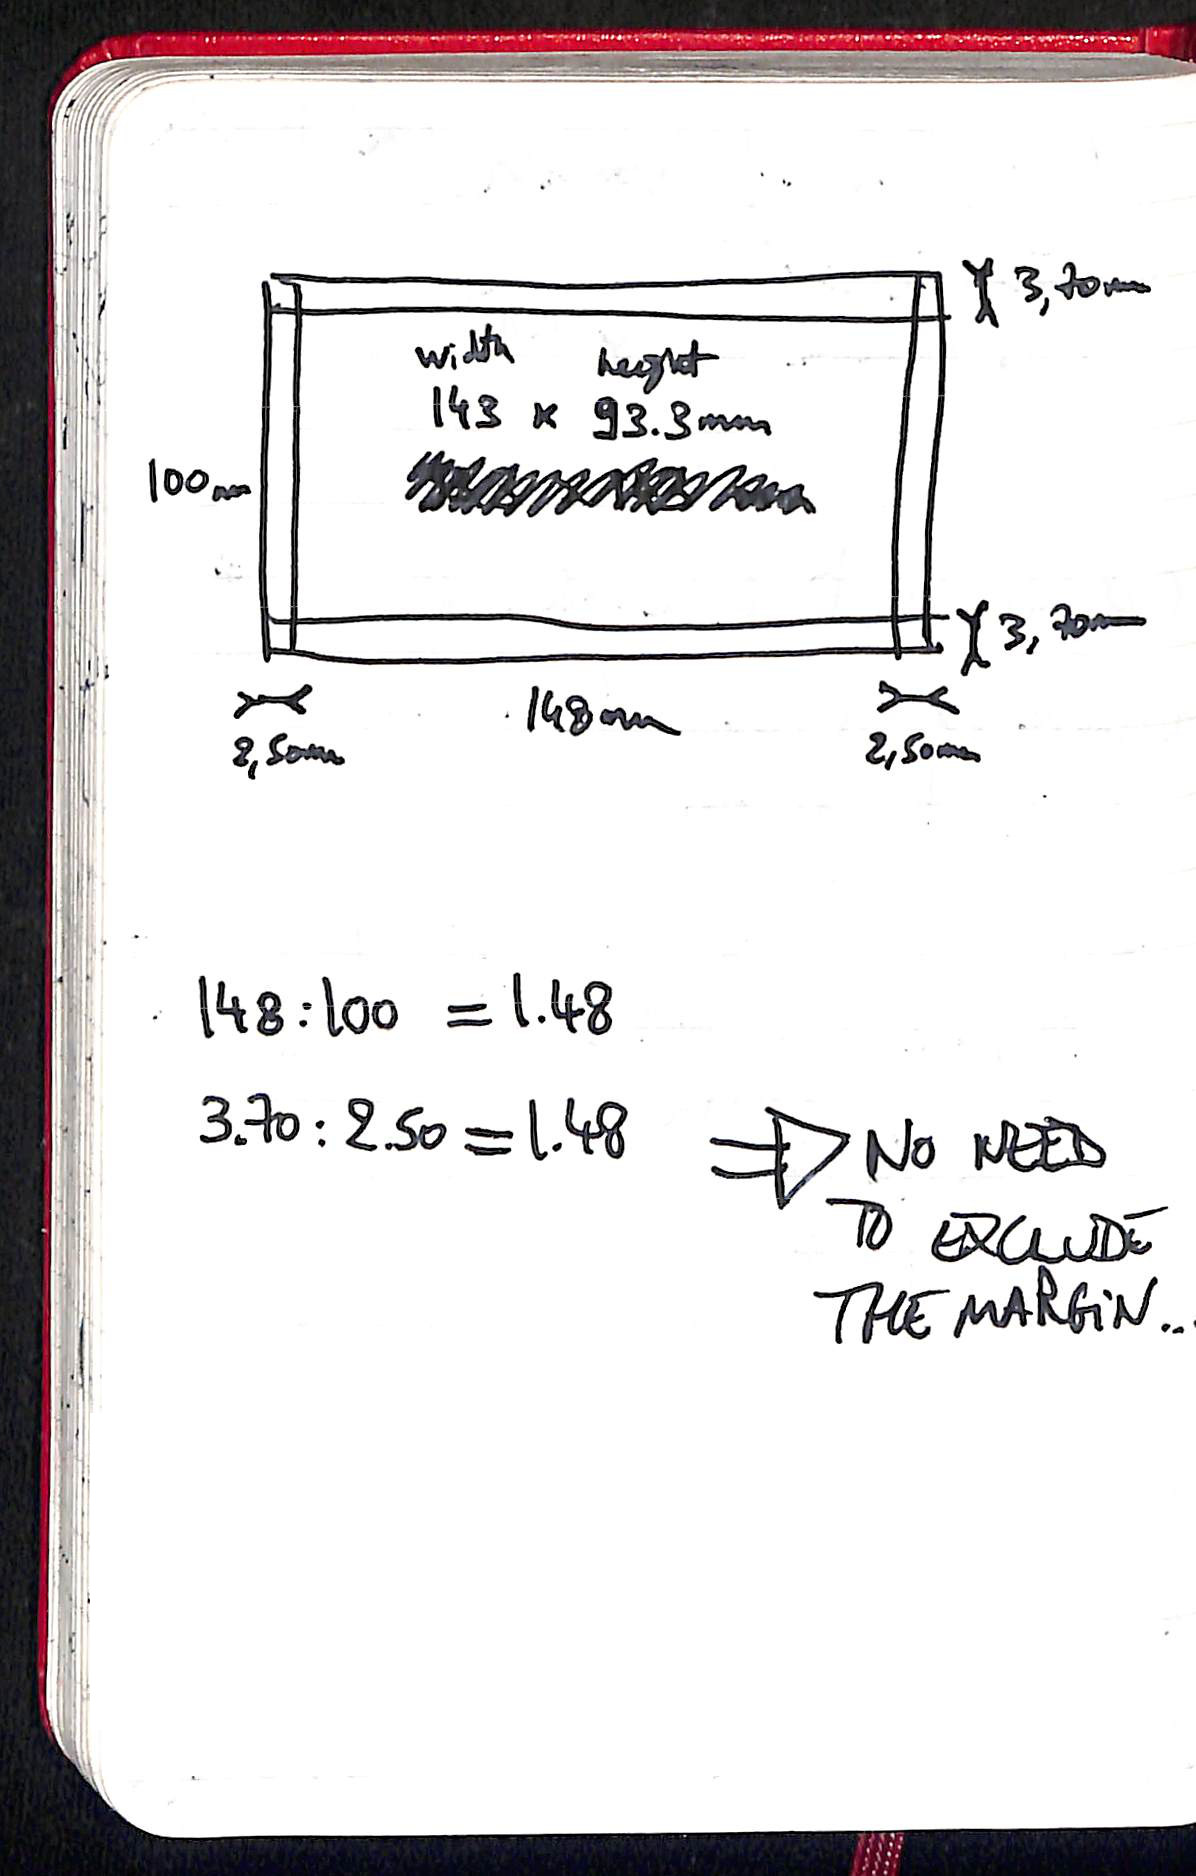 3,70mm
width height
143 x 93.3mm
100mm
3,70mm
148mm
2,50mm 2,50mm
148:100 = 1.48
3.70:2.50=1.48 ⇒ NO NEED
TO EXCLUDE
THE MARGIN...